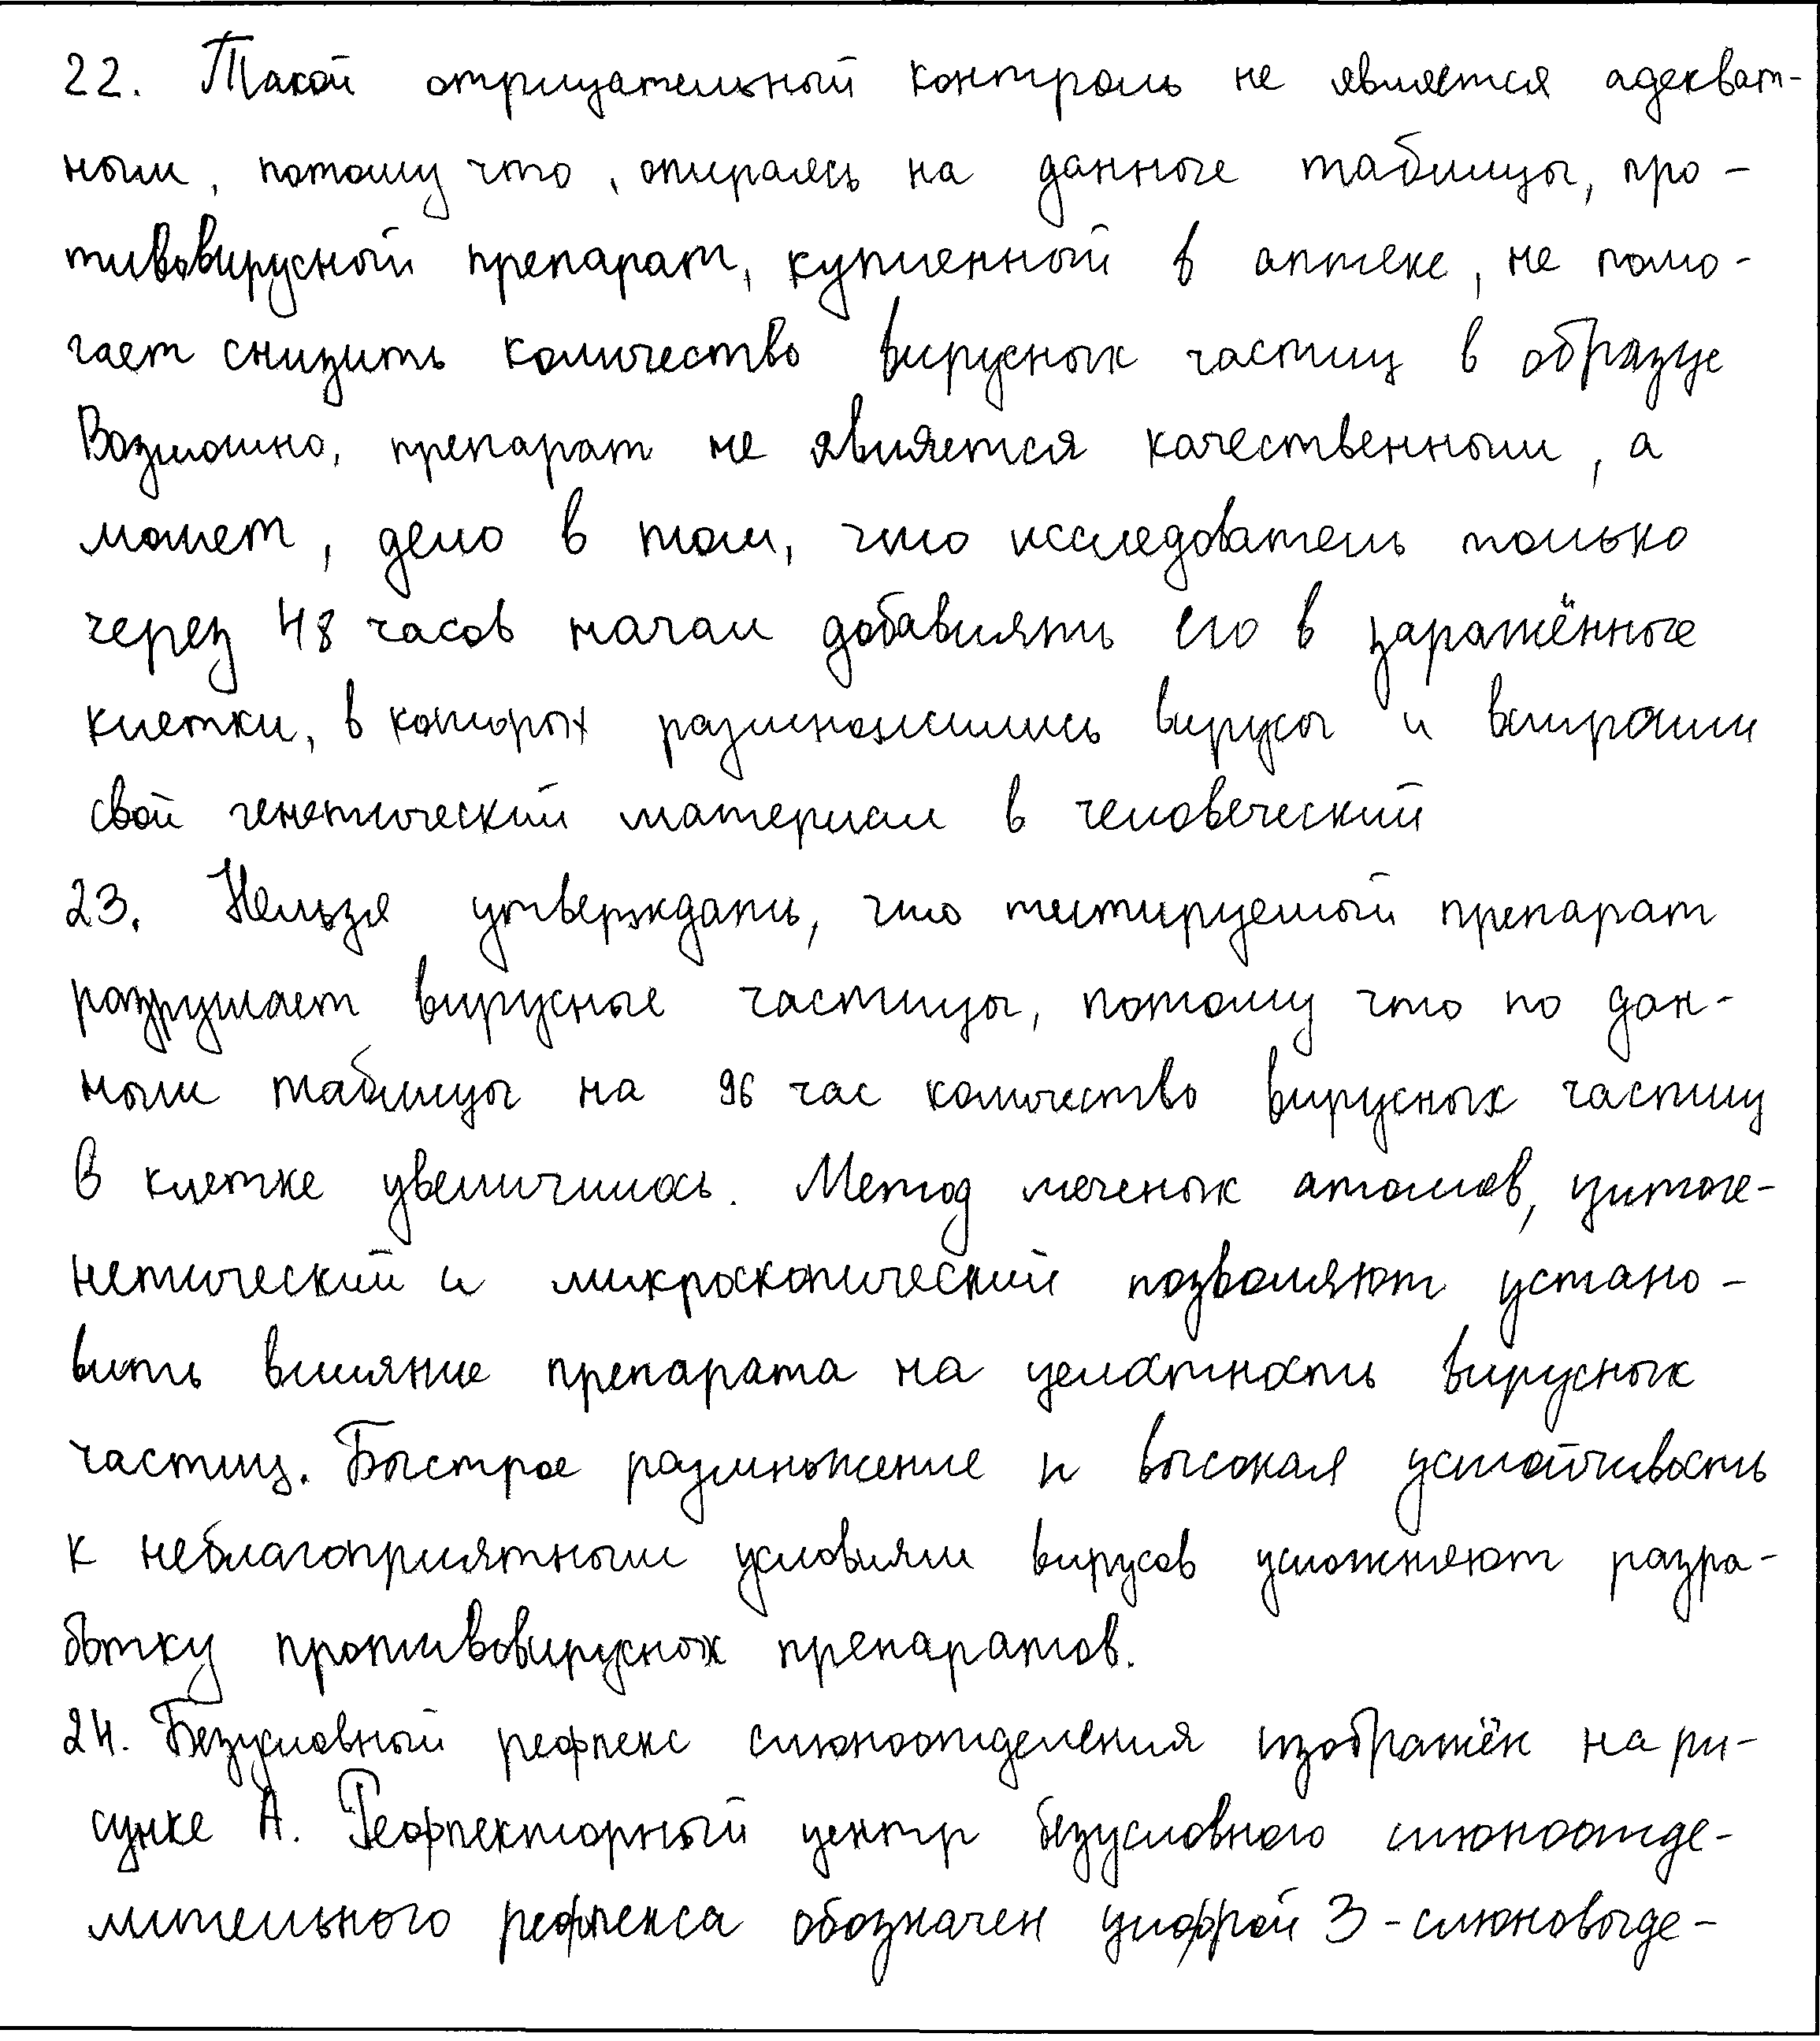 22. Такой отрицательный контроль не является адекват-
ным, потому что, опираясь на данные таблицы, про-
тивовирусный препарат, купленный в аптеке, не помо-
гает снизить количество вирусных частиц в образце
Возможно, препарат не является качественным, а
может, дело в том, что исследователь только
через 48 часов начал добавлять его в заражённые
клетки, в которых размножились вирусы и встроили
свой генетический материал в человеческий
23. Нельзя утверждать, что тестируемый препарат
разрушает вирусные частицы, потому что по дан-
ным таблицы на 96 час количество вирусных частиц
в клетке увеличилось. Метод меченых атомов, цитоге-
нетический и микроскопический позволяют устано-
вить влияние препарата на целостность вирусных
частиц. Быстрое размножение и высокая устойчивость
к неблагоприятным условиям вирусов усложняют разра-
ботку противовирусных препаратов.
24. Безусловный рефлекс слюноотделения изображён на ри-
сунке А. Рефлекторный центр безусловного слюноотде-
лительного рефлекса обозначен цифрой 3 - слюновыде-